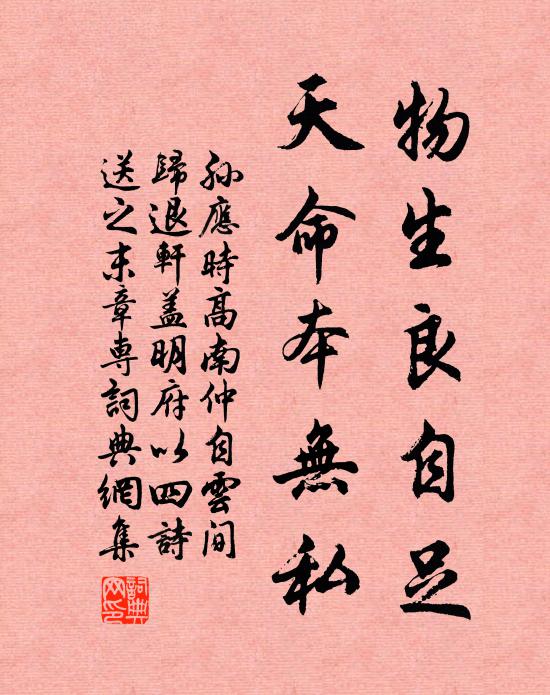 物生良自足
天命本無私
孫應時高南仲自雲間
歸退軒蓋明府以四詩
送之末章専詞典網集
詞典網印